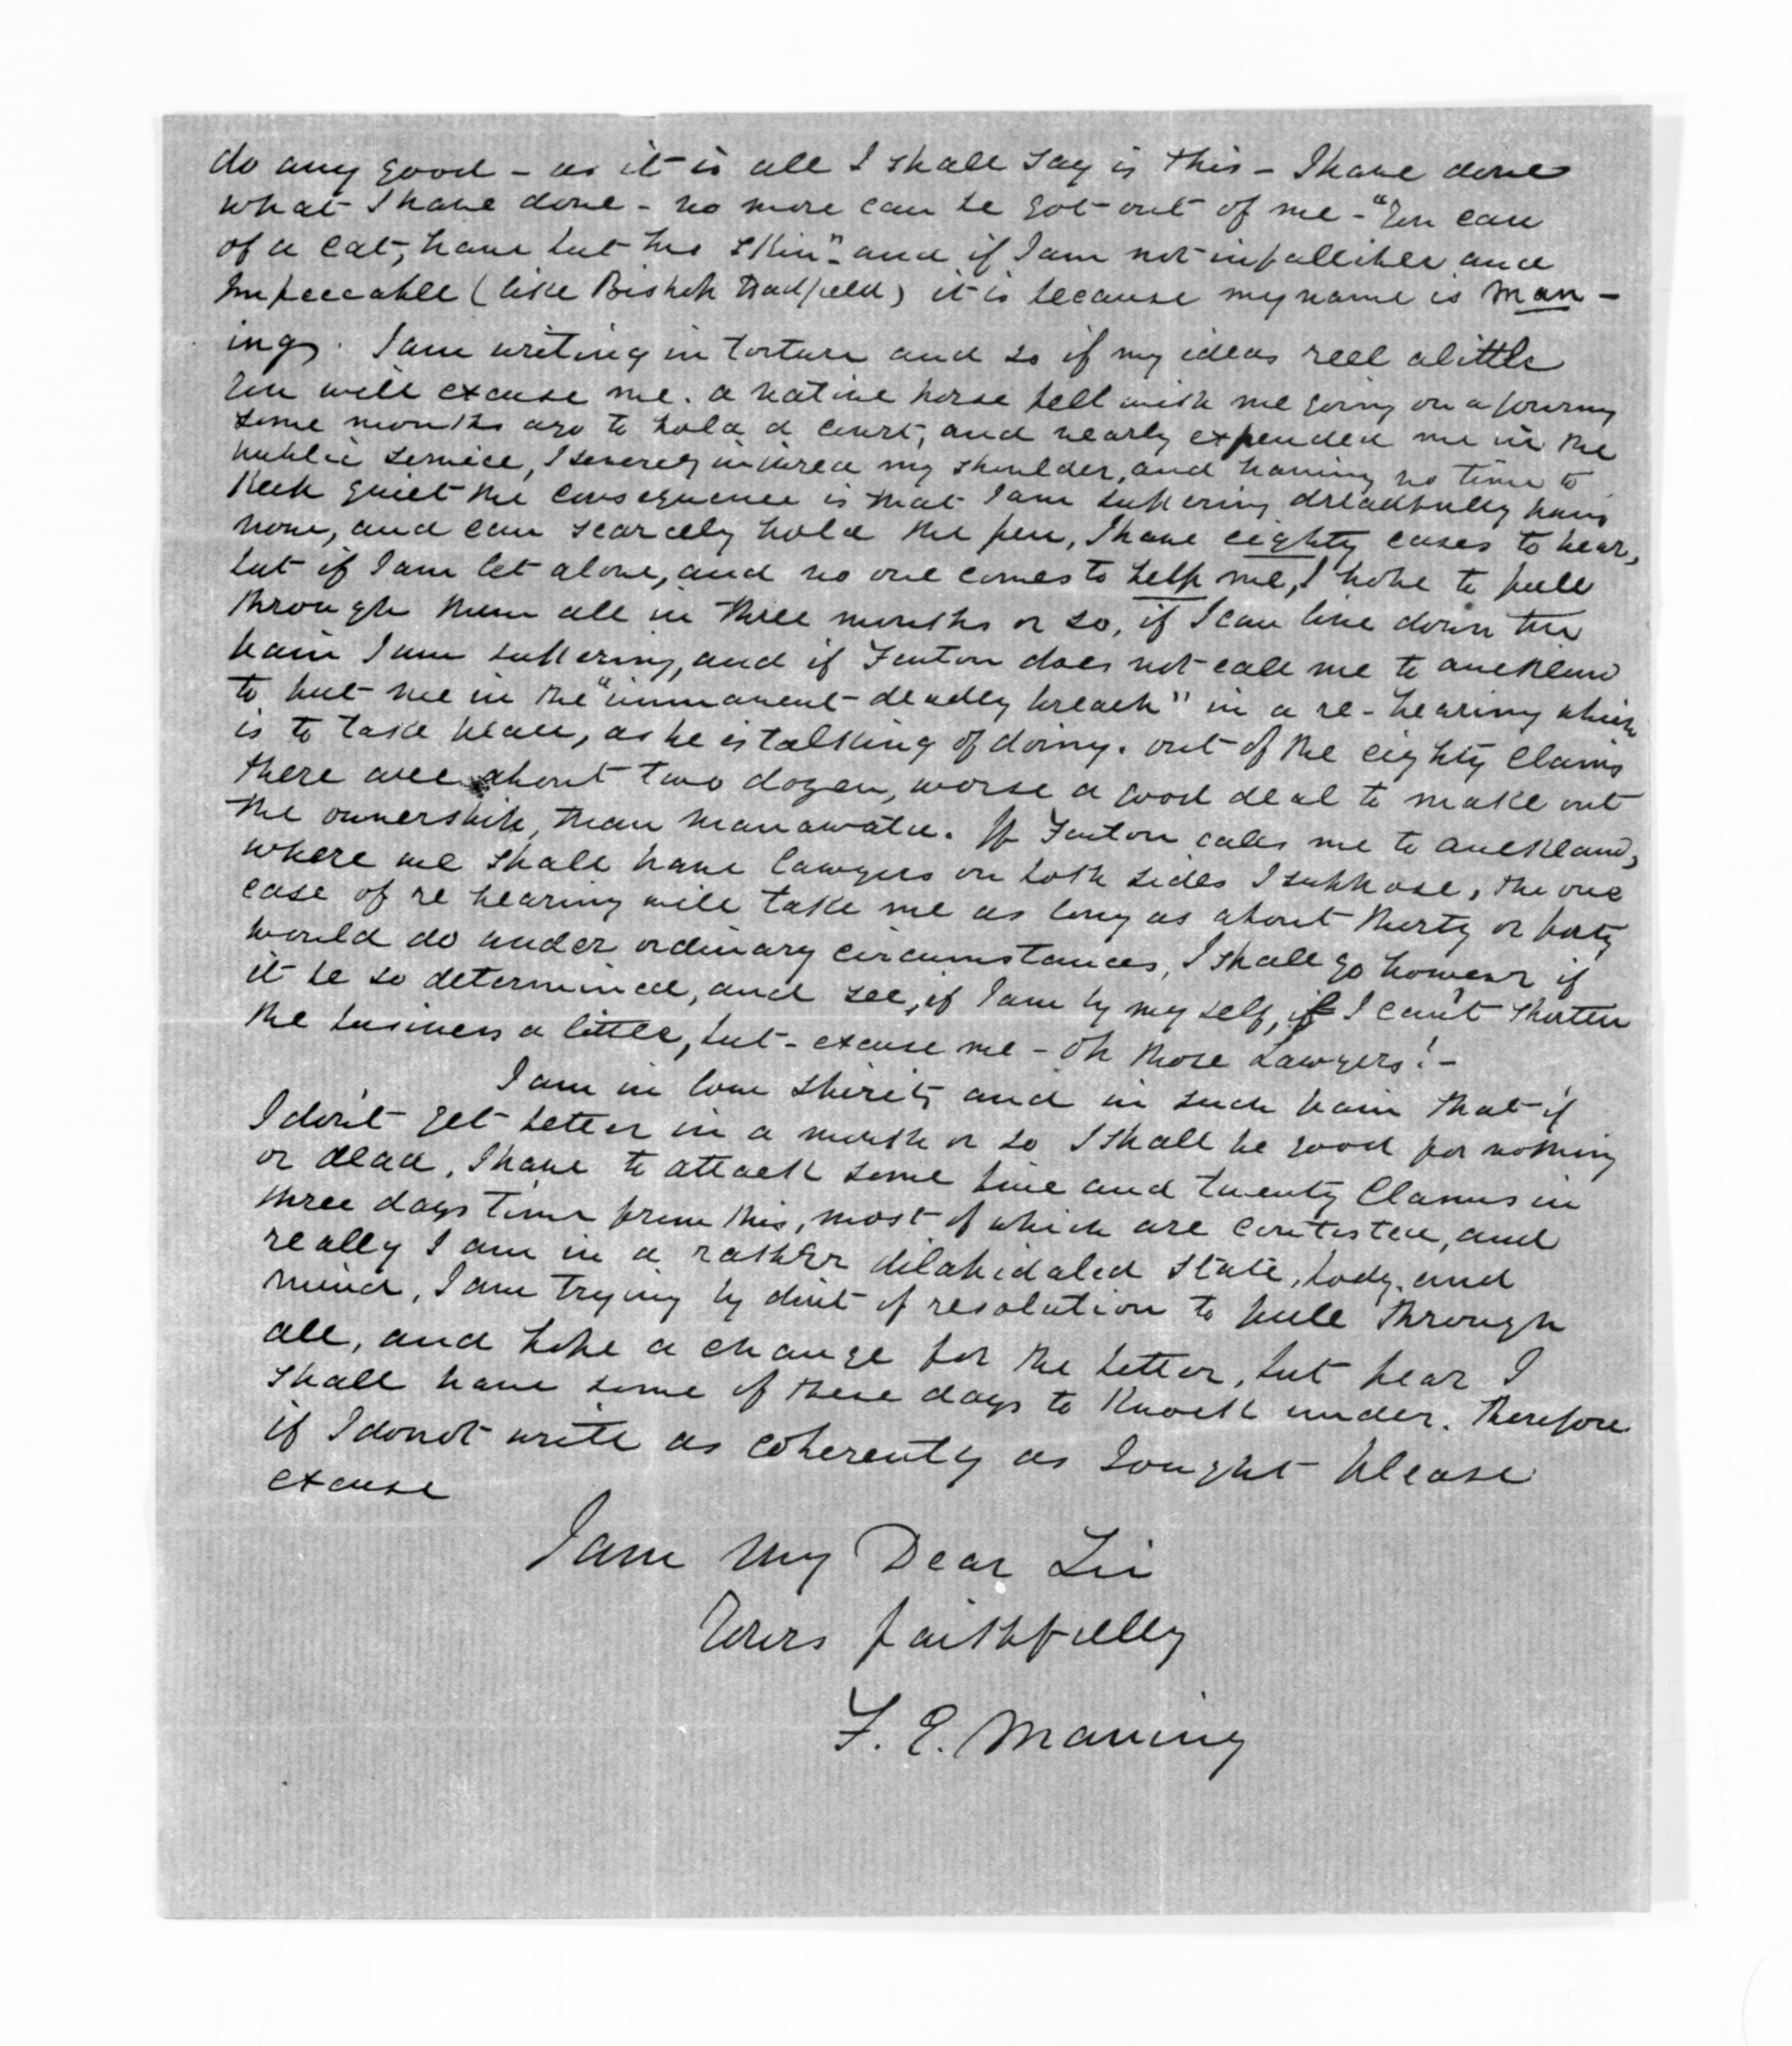 do any good - as it is all I shall say is this - I have done
what I have done - no more can be got out of me - "You can
of a cat, have but his skin" - and if I am not infallible and
Impeccable (like Bishop Hadfield) it is because my name is Man -
ing. I am writing in torture and so if my ideas reel a little
you will excuse me. a native horse fell with me going on a journey
some months ago to hold a court, and nearly expended me in the
public service, I severely injured my shoulder, and having no time to
keep quiet the consequence is that I am suffering dreadfully
now, and can scarcely hold the pen, I have eighty cases to hear,
but if I am let alone, and no one comes to help me, I hope to pull
through them all in three months or so, if I can live down the
pain I am suffering, and if Fenton does not call me to Auckland
to put me in the "immanent deadly breach" in a re-hearing which
is to take place, as he is talking of doing. out of the eighty Claims
there are about two dozen, worse a good deal to make out
the ownership, than Manawatu. If Fenton calls me to Auckland,
where we shall have lawyers on both sides I suppose, the one
case of re hearing will take me as long as about thirty or forty
would do under ordinary circumstances, I shall go however if
it be so determined, and see, if I am by my self, if I can't shorten
the business a little, but - excuse me - Oh those Lawyers! -
I am in low spirits and in such pain that if
I don't get better in a month or so I shall be good for nothing
or dead, I have to attack some five and twenty Claims in
three days time from this, most of which are contested, and
really I am in a rather dilapidated state, body and
mind, I am trying by dint of resolution to pull through
all, and hope a change for the better, but fear I
shall have some of these days to knock under. Therefore
if I do not write as coherently as I ought please
excuse
I am My Dear Sir
Yours faithfully
F. E. Maning